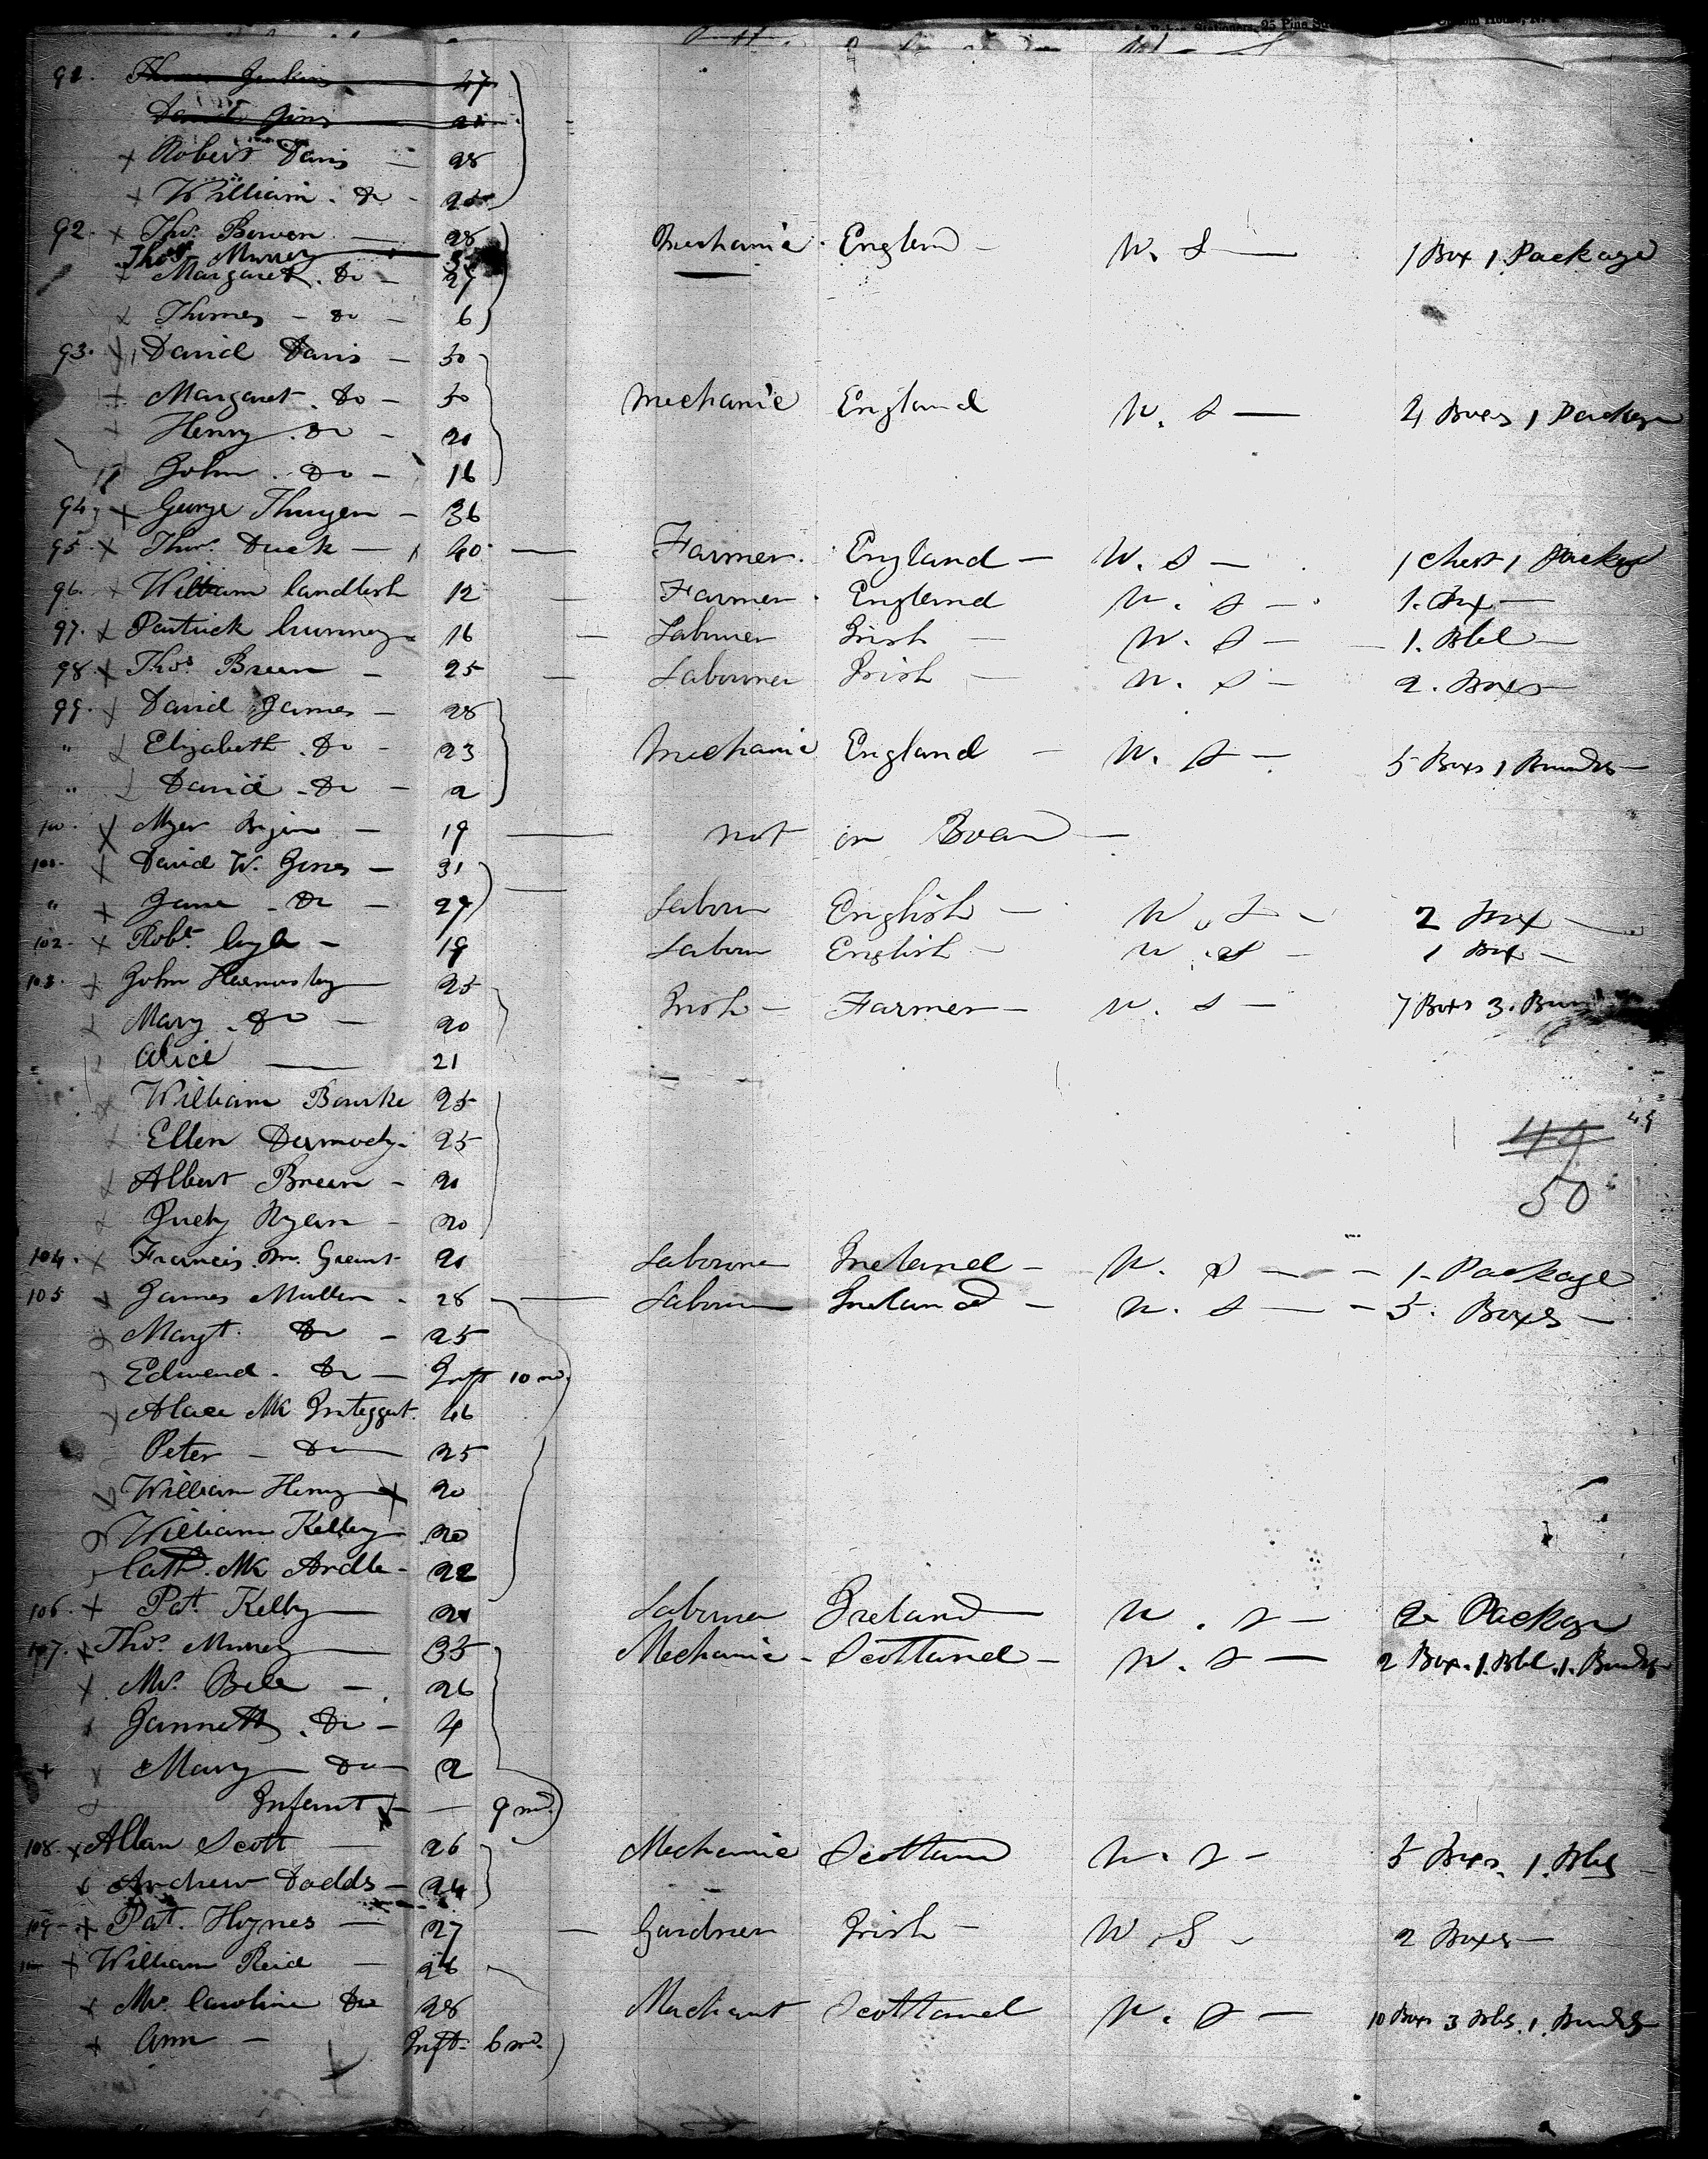 Stationers, 25 Pine St
91. Thomas Jenkins 47
David Jones 21
x Robert Davis — 28
x William. Do - 25
92. x Thos. Bowen — 28 Mechanic. England — U. S — 1 Box 1 Package
Thos. Murray
x Margaret. Do - 27
Thomas - Do - 6
93. David Davis - 50
Margaret. Do - 50 Mechanic England U. S — 4 Boxes 1 Package
Henry. Do - 20
John. Do - 16
94. x George - 36
95. x Thos. Duck — 40 — Farmer. England — U. S — 1 Chest 1 Package
96. x William 12 — Farmer. England U. S — 1. Box —
97. x Patrick 16 — Labourer Irish — U. S — 1. Bbl —
98. x Thos Breen - 25 — Labourer Irish — U. S — 2. Boxes
99. x David James - 28
" Elizabeth. Do - 23 Mechanic England — U. S — 5 Boxes 1 Bundle
" David. Do - 2
100. x Myer - 19 — not on Board —
101. x David W. Jones - 31
" x Jane. Do - 29 — Labour English — U. S — 2 Box —
102. x Robt. - 19 Labour English — U. S — 1 Box —
103. x John 25
Mary. Do — 20 Irish — Farmer — U. S — 7 Boxes 3.
Alice — 21
William Bourke 25
Ellen Dermody. 25
49
49
50
Albert Breen - 20
Judy Ryan - 20
104. x Francis. M. Grant 20 Labourer Ireland — U. S — 1. Package
105 x James Mullen. 28 — Labourer Ireland — U. S — 5. Boxes —
Margt. Do - 25
Edward. Do — Inft 10 m.
Alace Mk 46
Peter — Do — 25
William Henry x 20
William Kelley 20
Cath. Mk Ardle - 22
106. x Pat. Kelly — 20 Labourer Ireland — U. S — 2 Package
107. x Thos. Murray — 35 Mechanic - Scottland — U. S — 2 Box. 1. Bbl. 1. Bundle
x Mrs. Bele — 26
Jannett. Do - 4
x Mary — Do — 2
Infant — 9 m.
108. x Allan Scott — 26 Mechanic Scottland U. S — 5 Boxes. 1. Bbls
Andrew Dodds — 24
109 - x Pat. Hynes — 27 — Gardner Irish — U. S - 2 Boxes —
x William Reid — 26
x Mrs. Caroline Do 28 Merchant Scottland U. S — 10 Boxes 3 Bbls. 1. Bundle
x Ann — Inft. 6 m.